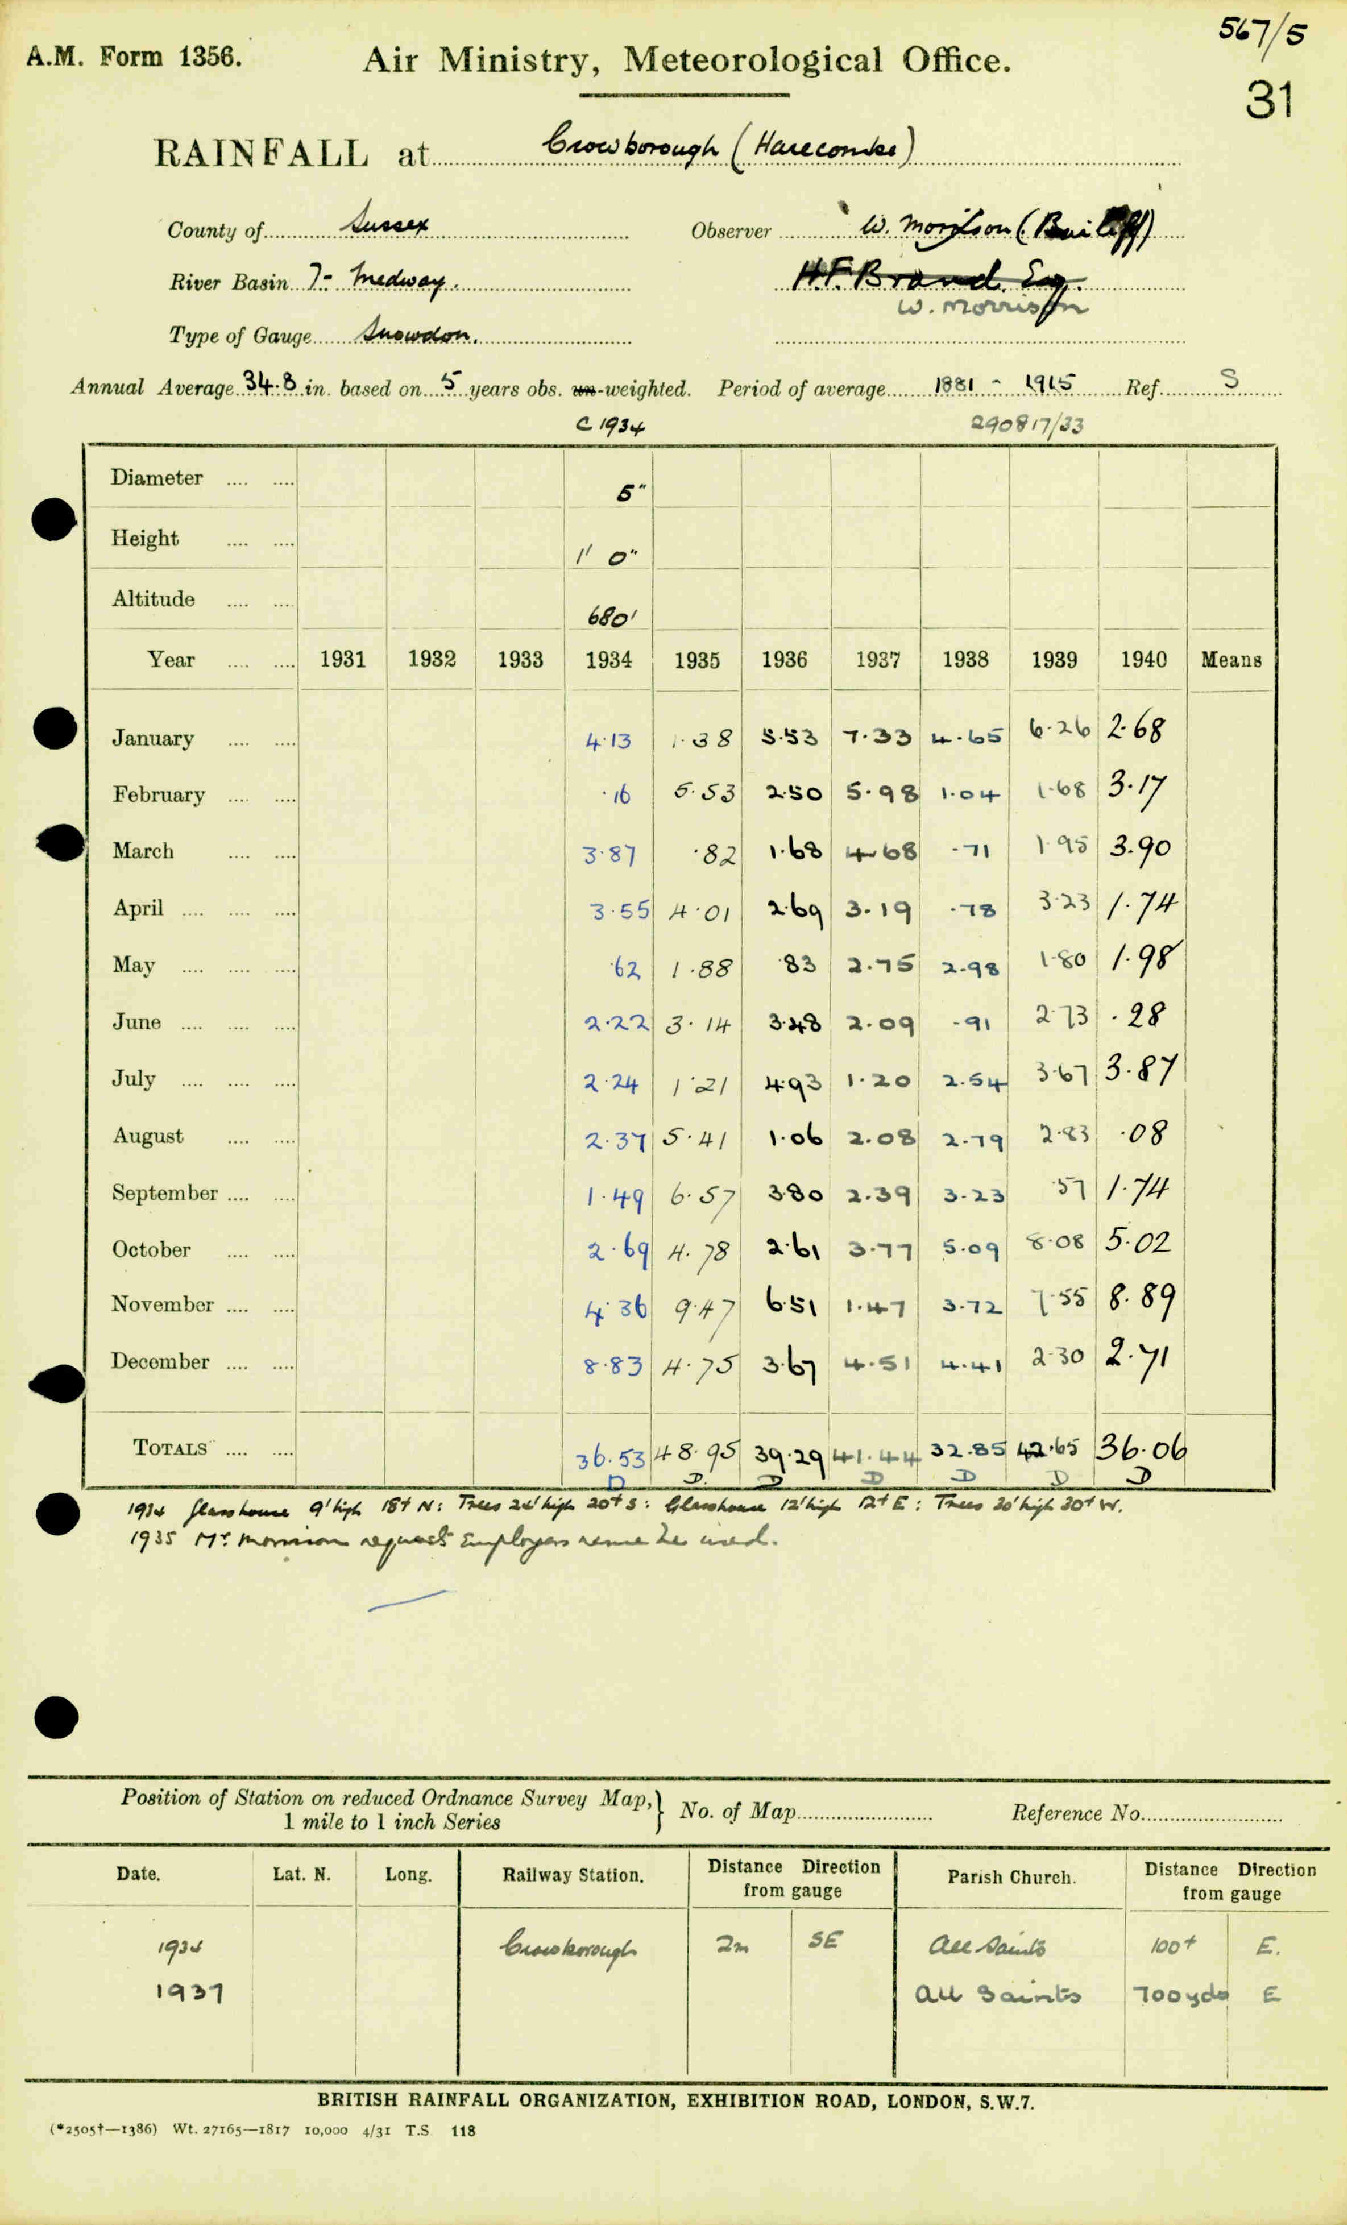 567/5
A.M. Form 1356. Air Ministry, Meteorological Office.
31
RAINFALL at Crowborough (Harecombe)
County of Sussex Observer W. Morrison (Bailiff)
River Basin 7- Medway. H.F. Brand. Esq.
W. Morrison
Type of Gauge Snowdon.
Annual Average 34.8 in. based on 5 years obs. un-weighted. Period of average 1881 - 1915 Ref. S
C 1934 290817/33
Diameter .... .... 5"
Height .... .... 1' 0"
Altitude .... .... 680'
Year .... .... 1931 1932 1933 1934 1935 1936 1937 1938 1939 1940 Means
January .... .... 4.13 1.38 5.53 7.33 4.65 6.26 2.68
February .... .... .16 5.53 2.50 5.98 1.04 1.68 3.17
March .... .... 3.87 .82 1.68 4.68 .71 1.95 3.90
April .... .... .... 3.55 4.01 2.69 3.19 .78 3.23 1.74
May .... .... .... .62 1.88 .83 2.75 2.98 1.80 1.98
June .... .... .... 2.22 3.14 3.48 2.09 .91 2.73 .28
July .... .... .... 2.24 1.21 4.93 1.20 2.54 3.67 3.87
August .... .... 2.37 5.41 1.06 2.08 2.79 2.83 .08
September .... .... 1.49 6.57 3.80 2.39 3.23 .57 1.74
October .... .... 2.69 4.78 2.61 3.77 5.09 8.08 5.02
November .... .... 4.36 9.47 6.51 1.47 3.72 7.55 8.89
December .... .... 8.83 4.75 3.67 4.51 4.41 2.30 2.71
TOTALS .... .... 36.53 48.95 39.29 41.44 32.85 42.65 36.06
D D. D D D D D
1934 Glasshouse 9' high 18+ N: Trees 24' high 20+ S: Glasshouse 12' high 12+ E: Trees 30' high 30+ W.
1935 Mr. Morrison requests Employers name be used.
Position of Station on reduced Ordnance Survey Map, } No. of Map Reference No.
1 mile to 1 inch Series
Date. Lat. N. Long. Railway Station. Distance Direction from gauge Parish Church. Distance Direction from gauge
1934 Crowborough 2m SE All Saints 100+ E.
1937 All Saints 700 yds E
BRITISH RAINFALL ORGANIZATION, EXHIBITION ROAD, LONDON, S.W.7.
(*2505†—1386) Wt. 27165—1817 10,000 4/31 T.S. 118